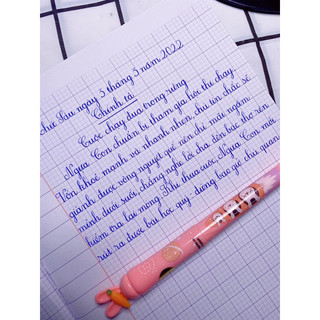 Thứ Sáu ngày 5 tháng 5 năm 2022
Chính tả
Cuộc chạy đua trong rừng
Ngựa Con chuẩn bị tham gia hội thi chạy.
Vốn khoẻ mạnh và nhanh nhẹn, chú tin chắc sẽ
giành được vòng nguyệt quế nên chỉ mải ngắm
mình dưới suối, chẳng nghe lời cha đến bác thợ rèn
kiểm tra lại móng. Khi thua cuộc, Ngựa Con mới
rút ra được bài học quý: đừng bao giờ chủ quan